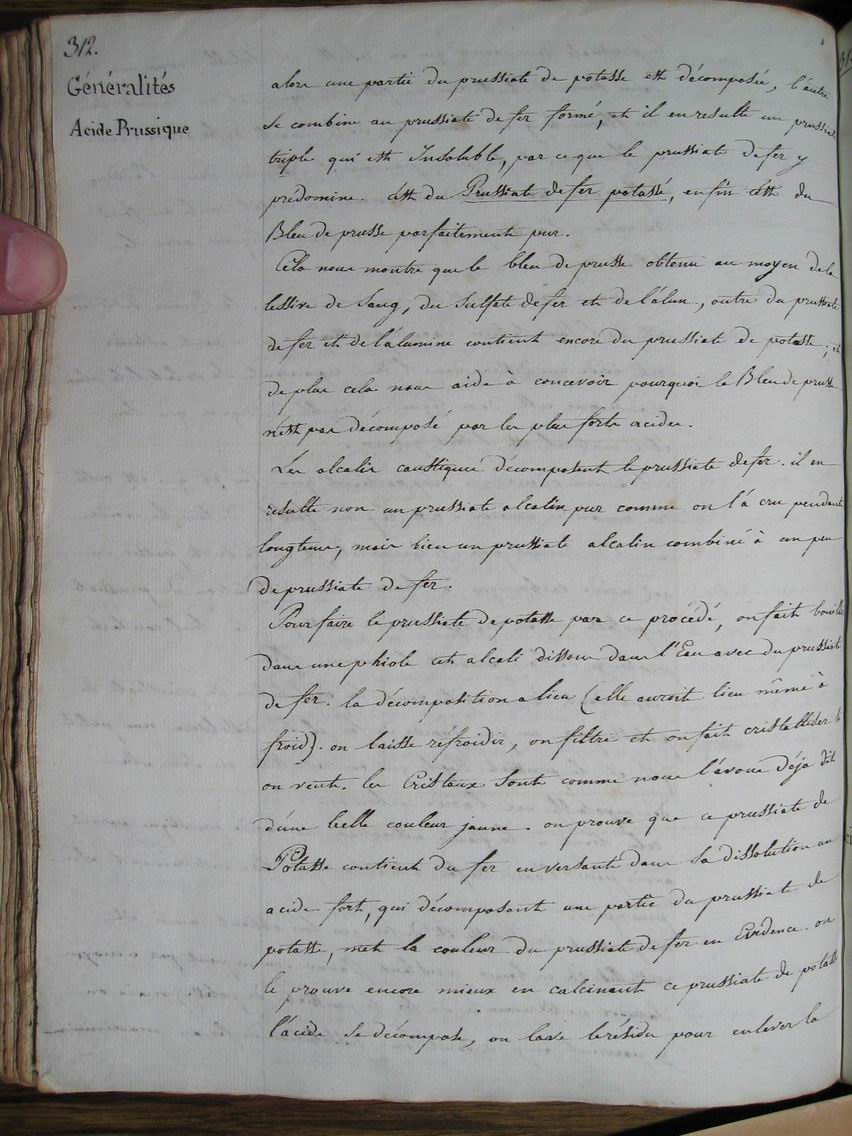 312.
Généralités
Acide Prussique
alors une partie du prussiate de potasse est décomposée, l'autre
se combine au prussiate de fer formé, et il en resulte un prussiate
triple qui est Insoluble, par ce que le prussiate de fer y
prédomine. C'est du Prussiate de fer potassé, enfin c'est du
Bleu de prusse parfaitement pur.
Cela nous montre que le bleu de prusse obtenu au moyen de la
lessive de Sang, du Sulfate de fer et de l'alun, outre du prussiate
de fer et de l'alumine contient encore du prussiate de potasse; et
de plus cela nous aide à concevoir pourquoi le Bleu de prusse
n'est pas décomposé par les plus forts acides.
Les alcalis caustiques décomposent le prussiate de fer. il en
resulte non un prussiate alcalin pur comme on l'a cru pendant
longtems, mais bien un prussiate alcalin combiné à un peu
de prussiate de fer.
Pour faire le prussiate de potasse par ce procédé, on fait bouillir
dans une phiole cet alcali dissous dans l'Eau avec du prussiate
de fer. la décomposition a lieu (elle auroit lieu même à
froid). on laisse réfroidir, on filtre et on fait cristalliser si
on veut. les Cristaux sont comme nous l'avons déja dit
d'une belle couleur jaune. on prouve que ce prussiate de
Potasse contient du fer en versant dans sa dissolution un
acide fort, qui décomposant une partie du prussiate de
potasse, met la couleur du prussiate de fer en Evidence. on
le prouve encore mieux en calcinant ce prussiate de potasse
l'acide se décompose, on lave le résidu pour enlever la